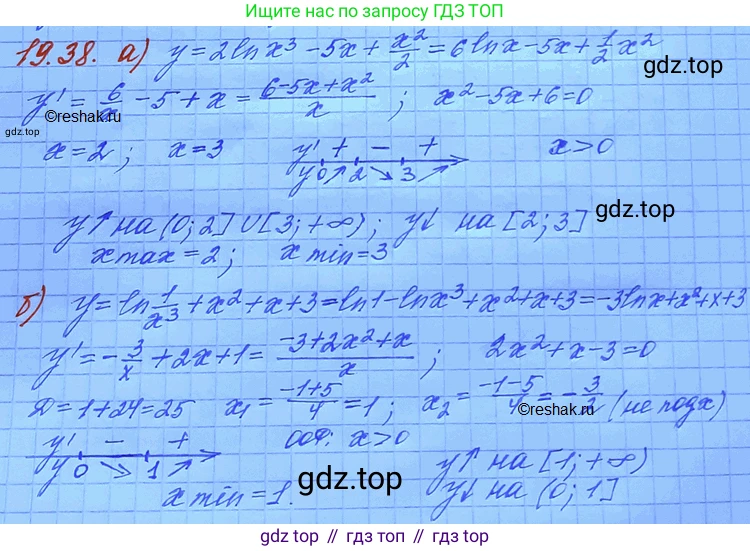 Ищите нас по запросу ГДЗ ТОП
19.38. а) y=2lnx³-5x+x²/2=6lnx-5x+1/2x²
gdz.top
y'=6/x-5+x=(6-5x+x²)/x; x²-5x+6=0
©reshak.ru
gdz.top
x=2; x=3 y' + - + x>0
y 0↗2↘3↗
gdz.top
y↑ на (0;2]∪[3;+∞); y↓ на [2;3]
xmax=2; xmin=3
б) y=ln1/x³+x²+x+3=ln1-lnx³+x²+x+3=-3lnx+x²+x+3
y'=-3/x+2x+1=(-3+2x²+x)/x; 2x²+x-3=0
Д=1+24=25 x₁=(-1+5)/4=1; x₂=(-1-5)/4=-3/2 (не подх)
©reshak.ru
y' - + ООФ: x>0
y 0↘1↗
gdz.top
y↑ на [1;+∞)
xmin=1. y↓ на (0;1]
gdz.top // gdz.top // gdz.top // gdz.top // gdz.top